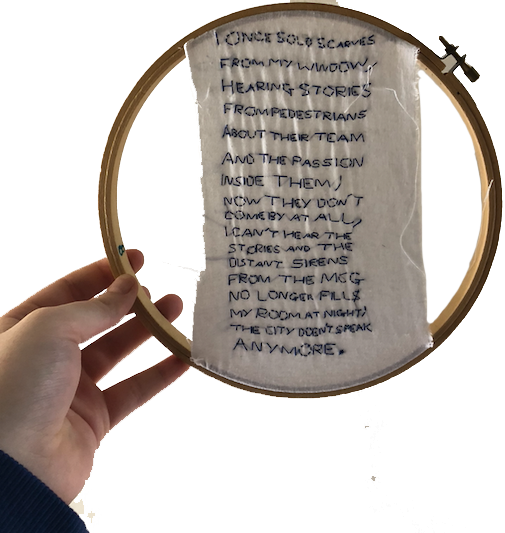 I ONCE SOLD SCARVES
FROM MY WINDOW,
HEARING STORIES
FROM PEDESTRIANS
ABOUT THEIR TEAM
AND THE PASSION
INSIDE THEM,
NOW THEY DON'T
COME BY AT ALL,
I CAN'T HEAR THE
STORIES AND THE
DISTANT SIRENS
FROM THE MCG
NO LONGER FILLS
MY ROOM AT NIGHT,
THE CITY DOEN'T SPEAK
ANYMORE.